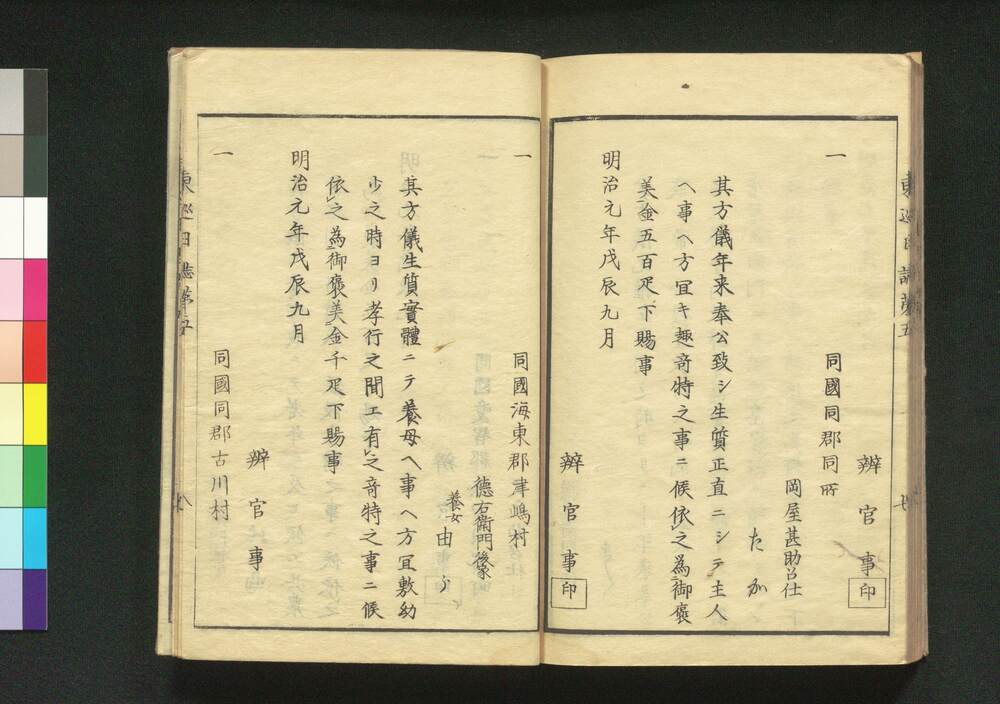 東巡日誌第五
七
辨官事 印
一
同國同郡同所
岡屋甚助召仕
たか
其方儀年来奉公致シ生質正直ニシテ主人
ヘ事ヘ方冝キ趣竒特之事ニ候依之為御褒
美金五百疋下賜事
明治元年戊辰九月
辨官事 印
一
同國海東郡津嶋村
徳右衞門後家
養女
由う
其方儀生質實體ニテ養母ヘ事ヘ方冝敷幼
少之時ヨリ孝行之聞エ有之竒特之事ニ候
依之為御褒美金千疋下賜事
明治元年戊辰九月
辨官事
一
同國同郡古川村
東巡日誌第五
八